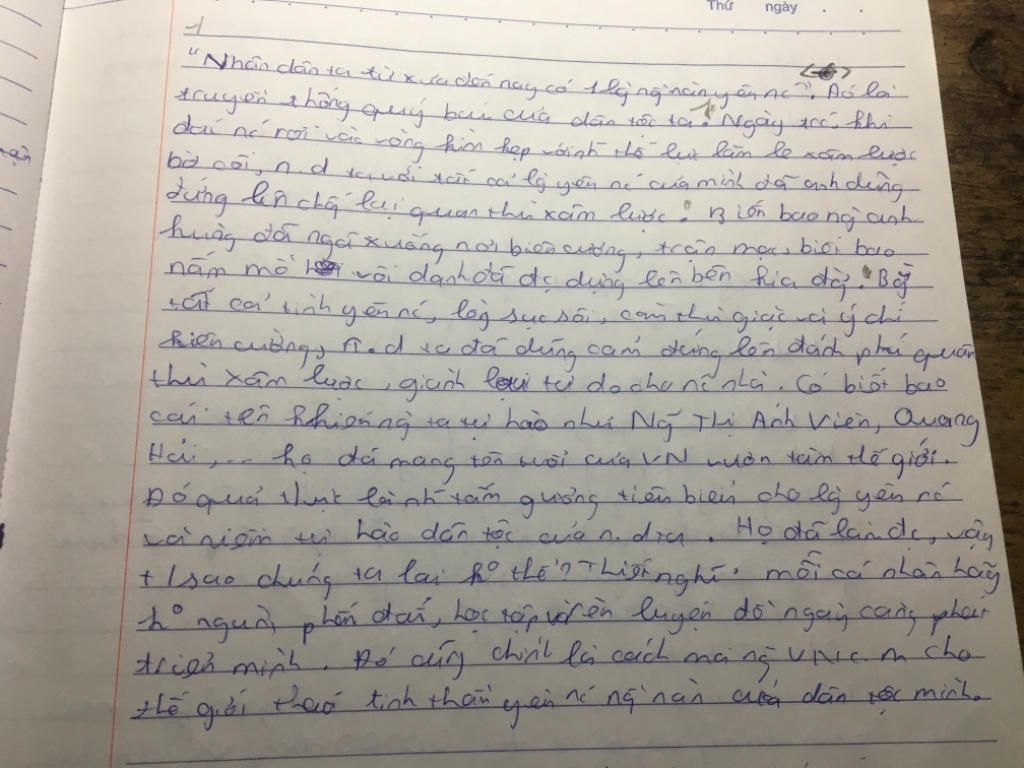 Thứ ngày . .
1
"Nhân dân ta từ xưa đến nay có 1 lg nồng nàn yêu nc". Đó là
truyền thống quý báu của dân tộc ta. Ngày trc khi
đất nc rơi vào vòng kìm kẹp với nh thế lực lăm le xâm lược
bờ cõi, n.d ta với tất cả lg yêu nc của mình đã anh dũng
đứng lên chống lại quân thù xâm lược. Biết bao ng anh
hùng đã ngã xuống nơi biên cương, trận mạc, biết bao
nấm mồ vô danh đã đc dựng lên bên kia đồi. Bằng
tất cả tình yêu nc, lòg sục sôi, căm thù giặc và ý chí
kiên cường, n.d ta đã dũng cảm đứng lên đánh phá quân
thù xâm lược, giành lại tự do cho nc nhà. Có biết bao
cái tên khiến ng ta tự hào như Ng Thị Ánh Viên, Quang
Hải, ... họ đã mang tên tuổi của VN vươn tầm thế giới.
Đó quả thực là nh tấm gương tiên biểu cho lg yêu nc
và niềm tự hào dân tộc của n.d ta. Họ đã làm đc, vậy
tại sao chúng ta lại ko thể? Thiết nghĩ mỗi cá nhân hãy
ko ngừng phấn đấu, học tập và rèn luyện để ngày càng phát
triển mình. Đó cũng chính là cách mà ng VN c.m cho
thế giới thấy tinh thần yêu nc nồng nàn của dân tộc mình.